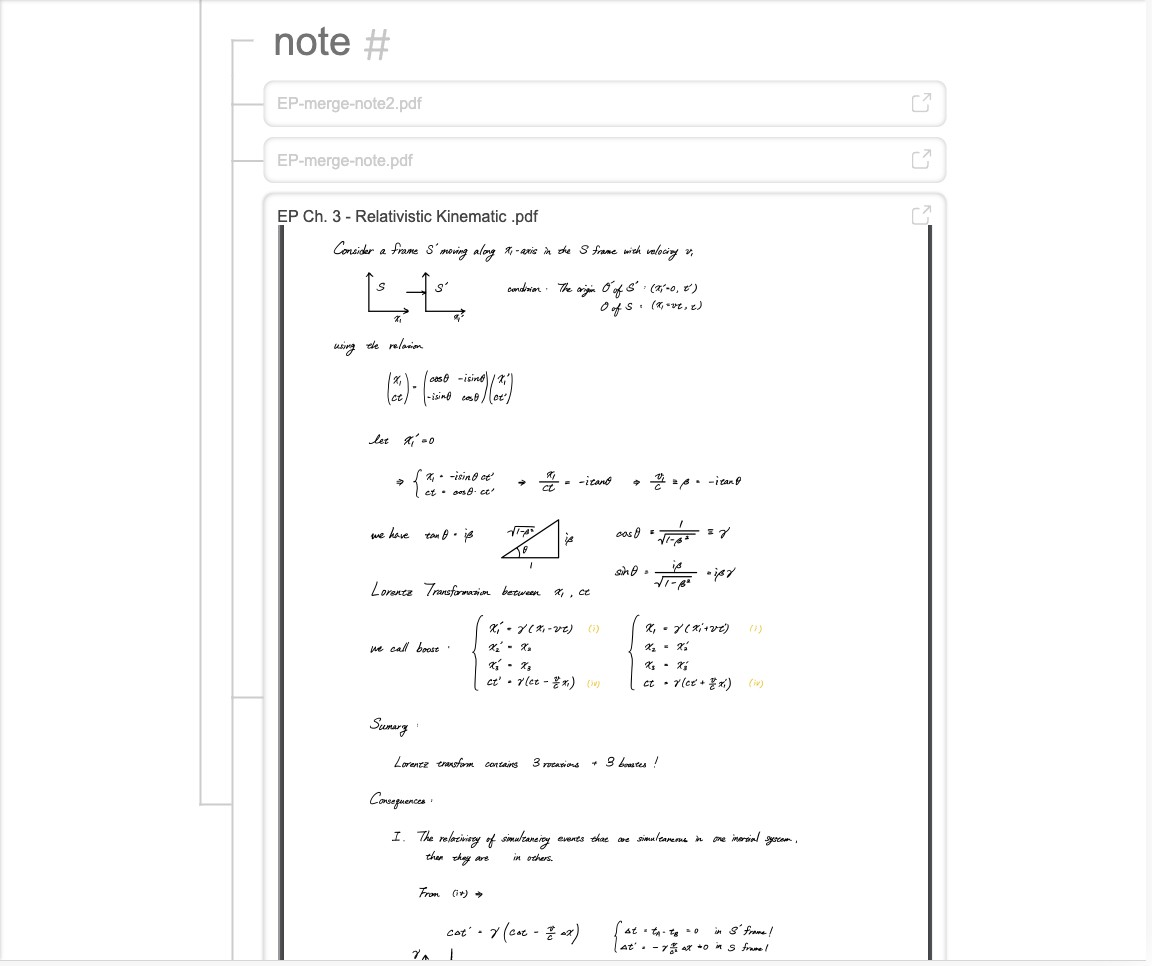 note #
EP-merge-note2.pdf
EP-merge-note.pdf
EP Ch. 3 - Relativistic Kinematic .pdf
Consider a frame S' moving along x₁-axis in the S frame with velocity v,
S S'
x₁ x₁'
condition : The origin O' of S' : (x₁'=0, t')
O of S : (x₁=vt, t)
using the relation
(x₁ ct) = (cosθ -isinθ -isinθ cosθ)(x₁' ct')
let x₁' = 0
⇒ { x₁ = -isinθ ct' ⇒ x₁/ct = -itanθ ⇒ v₁/c ≡ β = -itanθ
ct = cosθ· ct'
we have tanθ = iβ √1-β² θ 1 iβ cosθ = 1/√1-β² ≡ γ
sinθ = iβ/√1-β² = iβγ
Lorentz Transformation between x₁ , ct
we call boost :
x₁' = γ(x₁-vt) (i) x₁ = γ(x₁'+vt') (i)
x₂' = x₂ x₂ = x₂'
x₃' = x₃ x₃ = x₃'
ct' = γ(ct - v/c x₁) (iv) ct = γ(ct' + v/c x₁') (iv)
Sumary :
Lorentz transform contains 3 rotations + 3 boostes !
Consequences :
I. The relativisty of simultaneity events that are simultaneous in one inertial system,
then they are in others.
From (iv) ⇒
cΔt' = γ(cΔt - v/c Δx) { Δt = tA - tB = 0 in S' frame !
Δt' = -γ v/c² Δx ≠0 in S frame !
γ